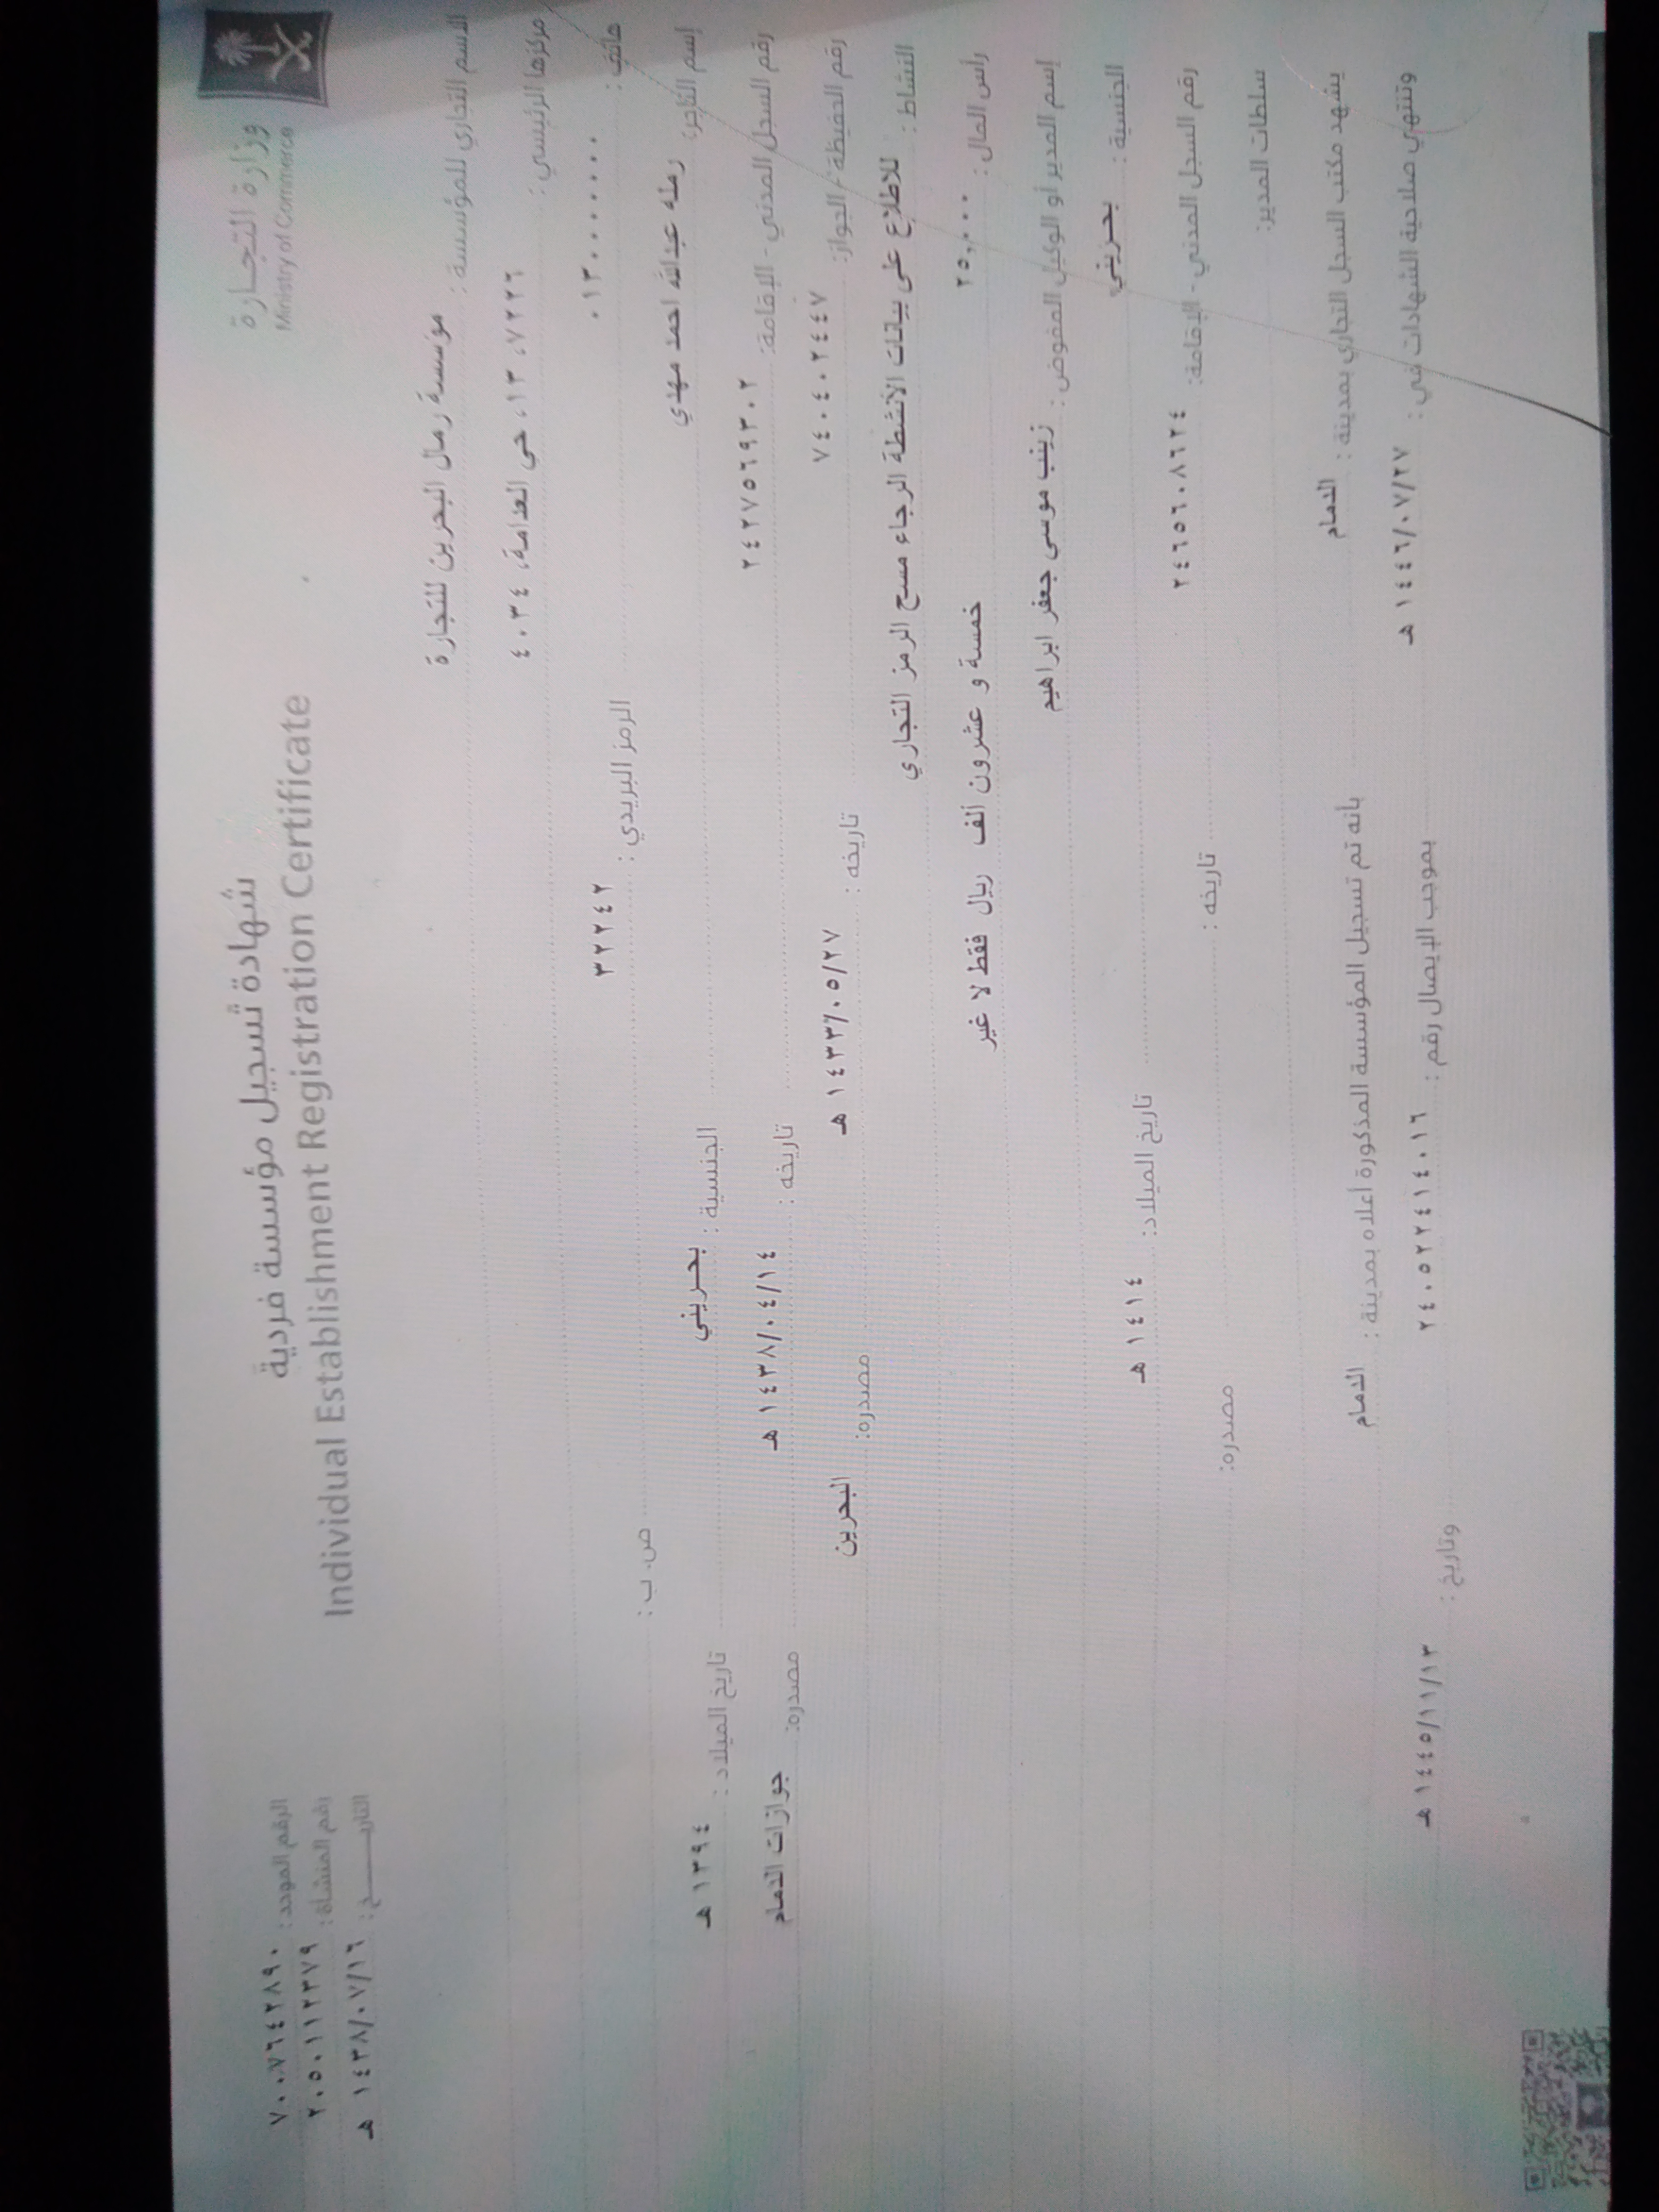 وزارة التجارة
Ministry of Commerce
شهادة تسجيل مؤسسة فردية
Individual Establishment Registration Certificate
الرقم الموحد: ٧٠٠٧٦٤٢٨٩٠
رقم المنشأة: ٢٠٥٠١١٢٣٧٩
التاريـــــــخ: ١٤٣٨/٠٧/١٦ هـ
الاسم التجاري للمؤسسة: مؤسسة رمال البحرين للتجارة
مركزها الرئيسي: ٧٢٢٦، ١٣، حى العدامة، ٤٠٣٤
هاتف: ٠١٣٠٠٠٠٠٠٠ الرمز البريدي: ٣٢٢٤٢ ص. ب:
إسم التاجر: رمله عبدالله احمد مهدي الجنسية: بحريني تاريخ الميلاد: ١٣٩٤ هـ
رقم السجل المدني - الإقامة: ٢٤٢٧٥٦٩٣٠٢ تاريخه: ١٤٣٨/٠٤/١٤ هـ مصدره: جوازات الدمام
رقم الحفيظة - الجواز: ٧٤٠٤٠٢٤٤٧ تاريخه: ١٤٣٣/٠٥/٢٧ هـ مصدره: البحرين
النشاط: للاطلاع على بيانات الأنشطة الرجاء مسح الرمز التجاري
رأس المال: ٢٥,٠٠٠ خمسة و عشرون ألف ريال فقط لا غير
إسم المدير أو الوكيل المفوض: زينب موسى جعفر ابراهيم
الجنسية: بحريني تاريخ الميلاد: ١٤١٤ هـ
رقم السجل المدني - الإقامة: ٢٤٦٥٦٠٨٦٢٤ تاريخه: مصدره:
سلطات المدير:
يشهد مكتب السجل التجاري بمدينة: الدمام بأنه تم تسجيل المؤسسة المذكورة أعلاه بمدينة: الدمام
وتنتهي صلاحية الشهادات في: ١٤٤٦/٠٧/٢٧ هـ بموجب الإيصال رقم: ٢٤٠٥٢٢٤١٤٠١٦ وتاريخ: ١٤٤٥/١١/١٣ هـ